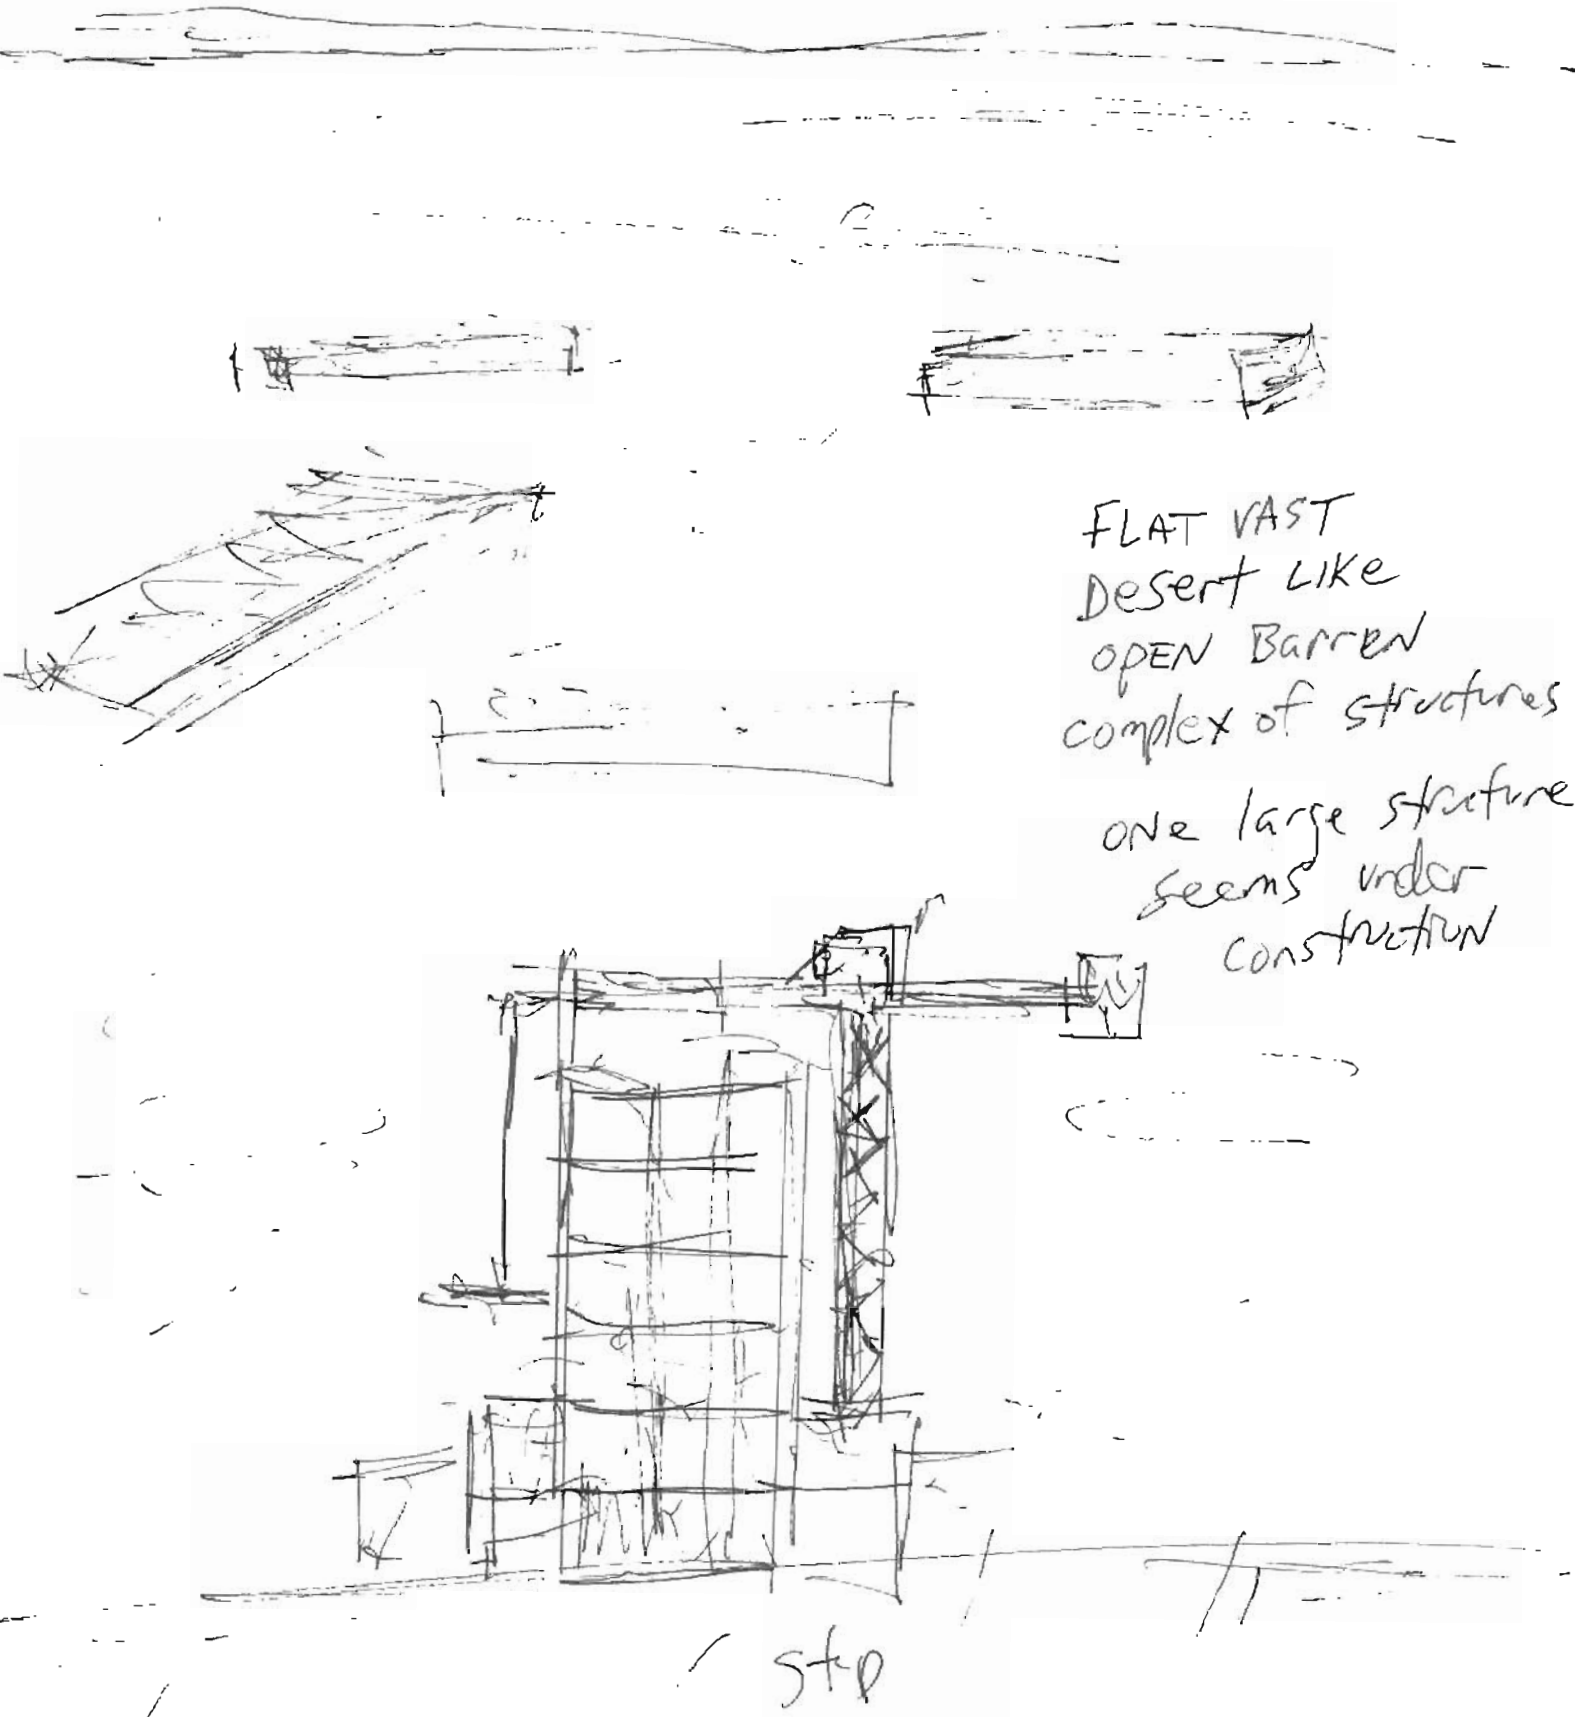 FLAT VAST
Desert LIKE
OPEN Barren
complex of structures
one large structure
seems under
construction
stp